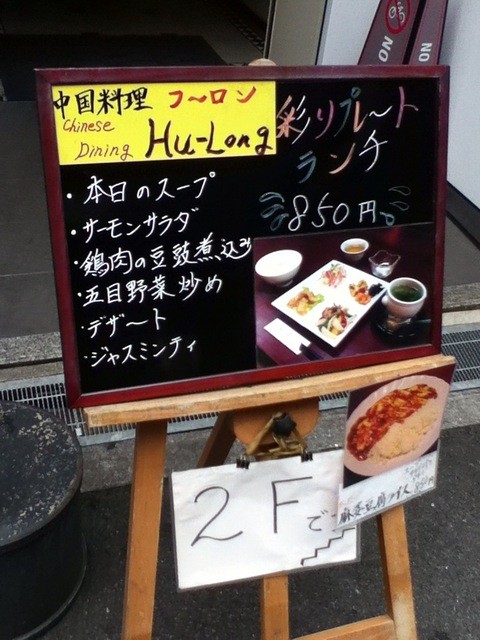 中国料理 フーロン
Chinese
Dining Hu-Long
彩りプレート
ランチ
850円
・本日のスープ
・サーモンサラダ
・鶏肉の豆豉煮込み
・五目野菜炒め
・デザート
・ジャスミンティ
2Fで
麻婆豆腐ライス
NO
NO